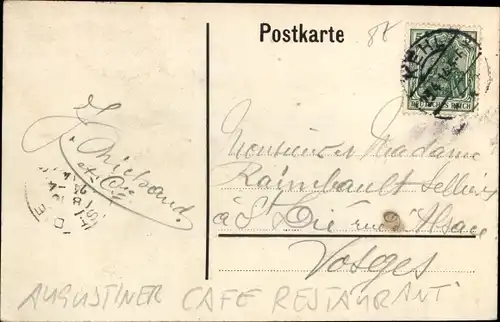 Postkarte
82
KEHL
DEUTSCHES REICH
J. Thiébaud
et Cie
Monsieur Madame
Raimbault Sellier
à St Dié rue d'Alsace
Vosges
AUGUSTINER CAFE RESTAURANT